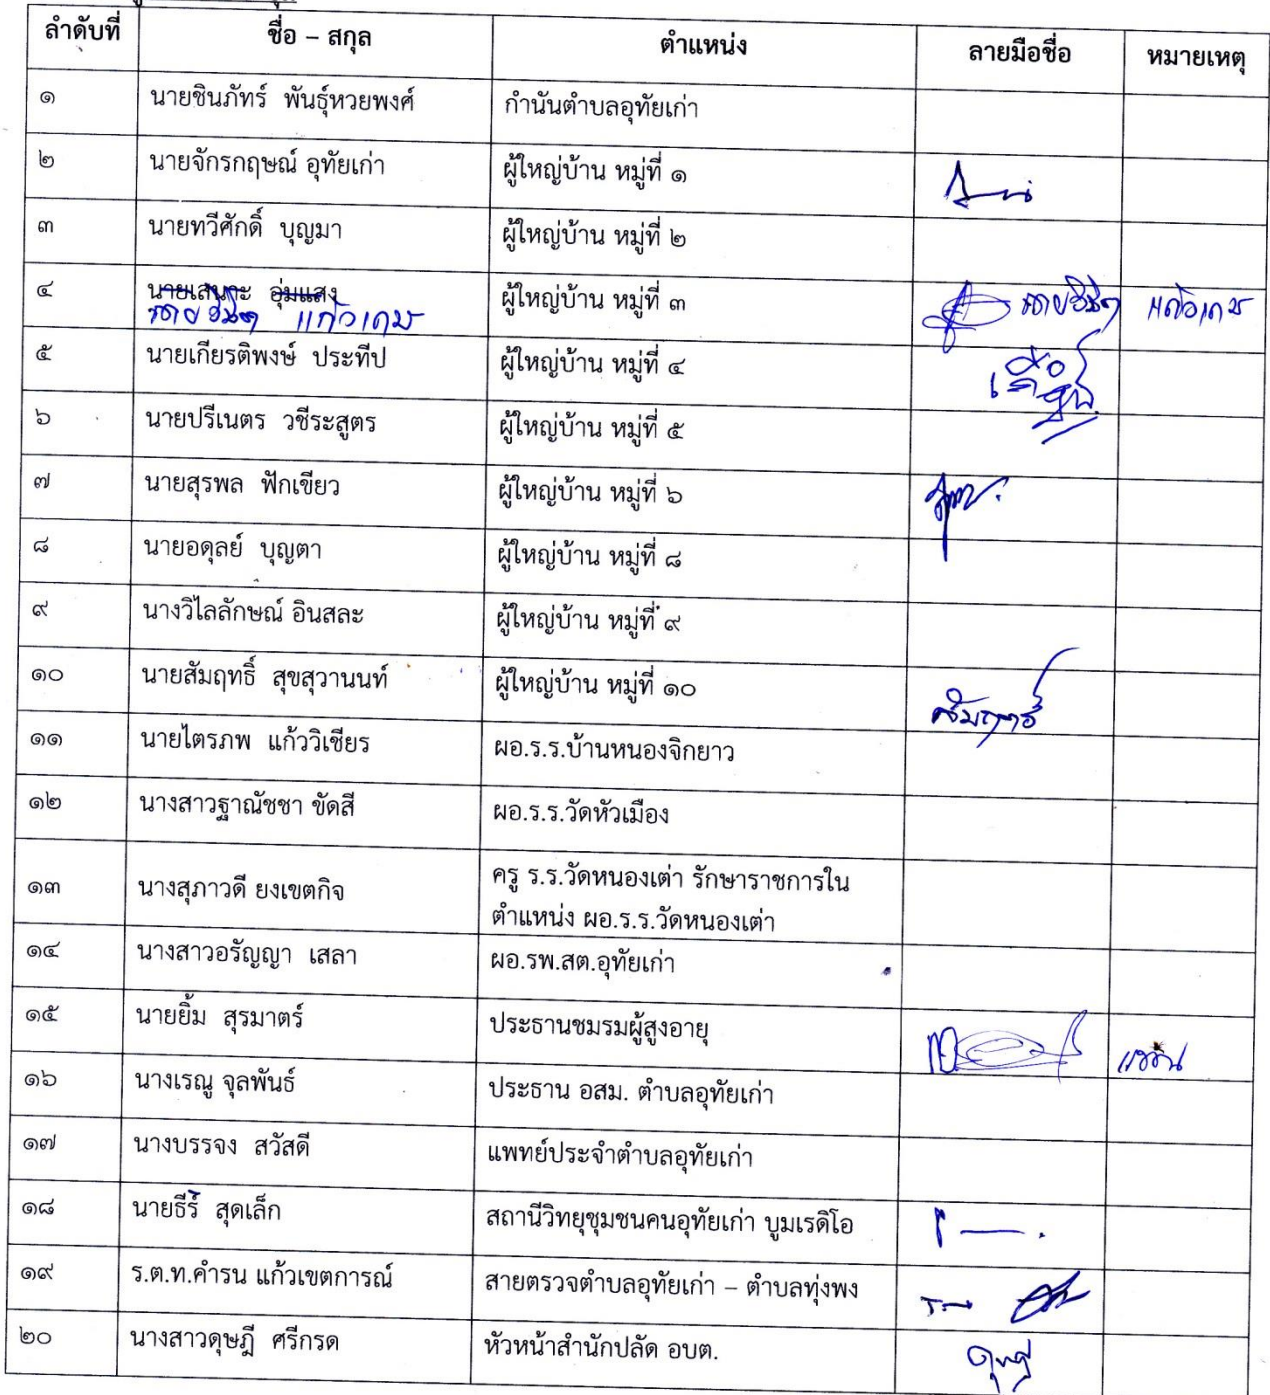 ลำดับที่ ชื่อ – สกุล ตำแหน่ง ลายมือชื่อ หมายเหตุ
๑ นายชินภัทร์ พันธุ์หวยพงศ์ กำนันตำบลอุทัยเก่า
๒ นายจักรกฤษณ์ อุทัยเก่า ผู้ใหญ่บ้าน หมู่ที่ ๑
๓ นายทวีศักดิ์ บุญมา ผู้ใหญ่บ้าน หมู่ที่ ๒
๔ นายเสนาะ อุ่มแสง ผู้ใหญ่บ้าน หมู่ที่ ๓
๕ นายเกียรติพงษ์ ประทีป ผู้ใหญ่บ้าน หมู่ที่ ๔
๖ นายปรีเนตร วชีระสูตร ผู้ใหญ่บ้าน หมู่ที่ ๕
๗ นายสุรพล ฟักเขียว ผู้ใหญ่บ้าน หมู่ที่ ๖
๘ นายอดุลย์ บุญตา ผู้ใหญ่บ้าน หมู่ที่ ๘
๙ นางวิไลลักษณ์ อินสละ ผู้ใหญ่บ้าน หมู่ที่ ๙
๑๐ นายสัมฤทธิ์ สุขสุวานนท์ ผู้ใหญ่บ้าน หมู่ที่ ๑๐ สัมฤทธิ์
๑๑ นายไตรภพ แก้ววิเชียร ผอ.ร.ร.บ้านหนองจิกยาว
๑๒ นางสาวฐาณัชชา ขัดสี ผอ.ร.ร.วัดหัวเมือง
๑๓ นางสุภาวดี ยงเขตกิจ ครู ร.ร.วัดหนองเต่า รักษาราชการใน
ตำแหน่ง ผอ.ร.ร.วัดหนองเต่า
๑๔ นางสาวอรัญญา เสลา ผอ.รพ.สต.อุทัยเก่า
๑๕ นายยิ้ม สุรมาตร์ ประธานชมรมผู้สูงอายุ
๑๖ นางเรณู จุลพันธ์ ประธาน อสม. ตำบลอุทัยเก่า
๑๗ นางบรรจง สวัสดี แพทย์ประจำตำบลอุทัยเก่า
๑๘ นายธีร์ สุดเล็ก สถานีวิทยุชุมชนคนอุทัยเก่า บูมเรดิโอ
๑๙ ร.ต.ท.คำรน แก้วเขตการณ์ สายตรวจตำบลอุทัยเก่า – ตำบลทุ่งพง
๒๐ นางสาวดุษฎี ศรีกรด หัวหน้าสำนักปลัด อบต. ดุษฎี